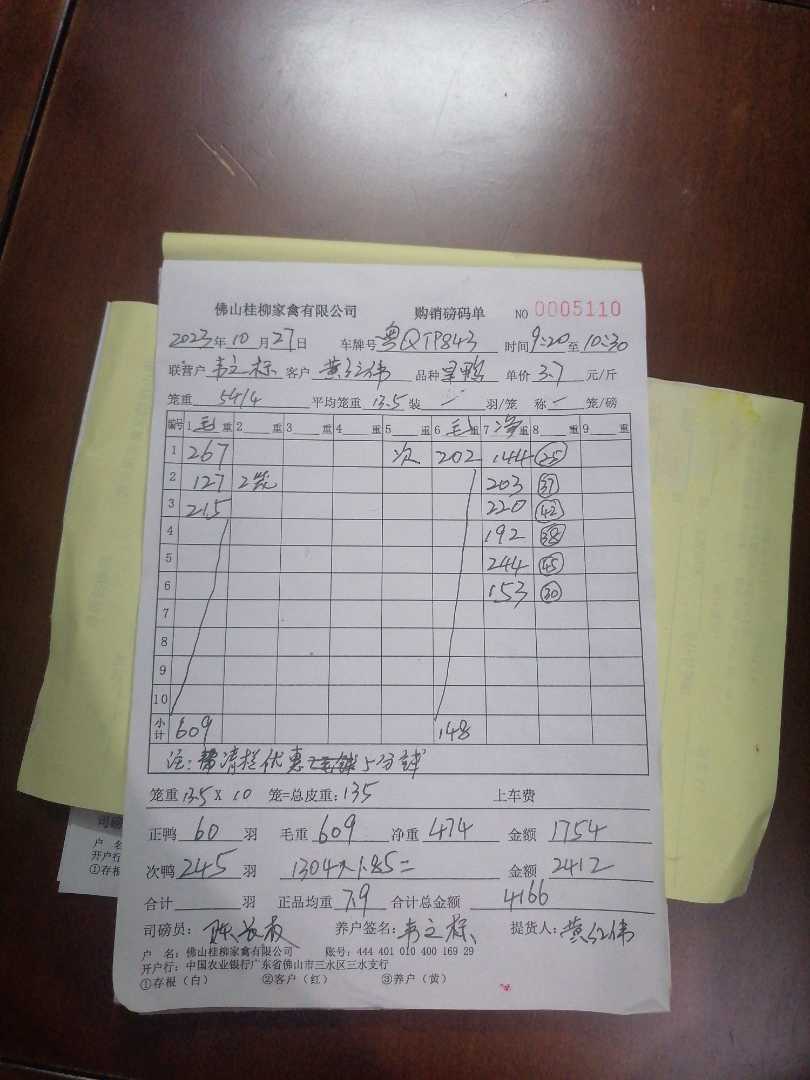 佛山桂柳家禽有限公司 购销磅码单 NO 0005110
2023年10月27日 车牌号粤QTP843 时间9:20至10:30
联营户韦立标 客户黄红伟 品种 单价3.7元/斤
笼重54/4 平均笼重13.5装一羽/笼 称一笼/磅
编号 1毛重 2重 3重 4重 5重 6毛重 7净重 8重 9重
1 267 次 202 144 25
2 127 2笼 203 37
3 215 220 42
4 192 38
5 244 45
6 153 30
7
8
9
10
小计 609 148
注: 清栏优惠 5分钱
笼重13.5X10 笼=总皮重:135 上车费
正鸭60羽 毛重609 净重474 金额1754
次鸭245羽 1304×1.85= 金额2412
合计羽 正品均重7.9 合计总金额4166
司磅员: 养户签名:韦立标 提货人:黄红伟
户 名:佛山桂柳家禽有限公司 账号:444 401 010 400 169 29
开户行:中国农业银行广东省佛山市三水区三水支行
①存根(白) ②客户(红) ③养户(黄)
司磅
户 名
开户行
①存根